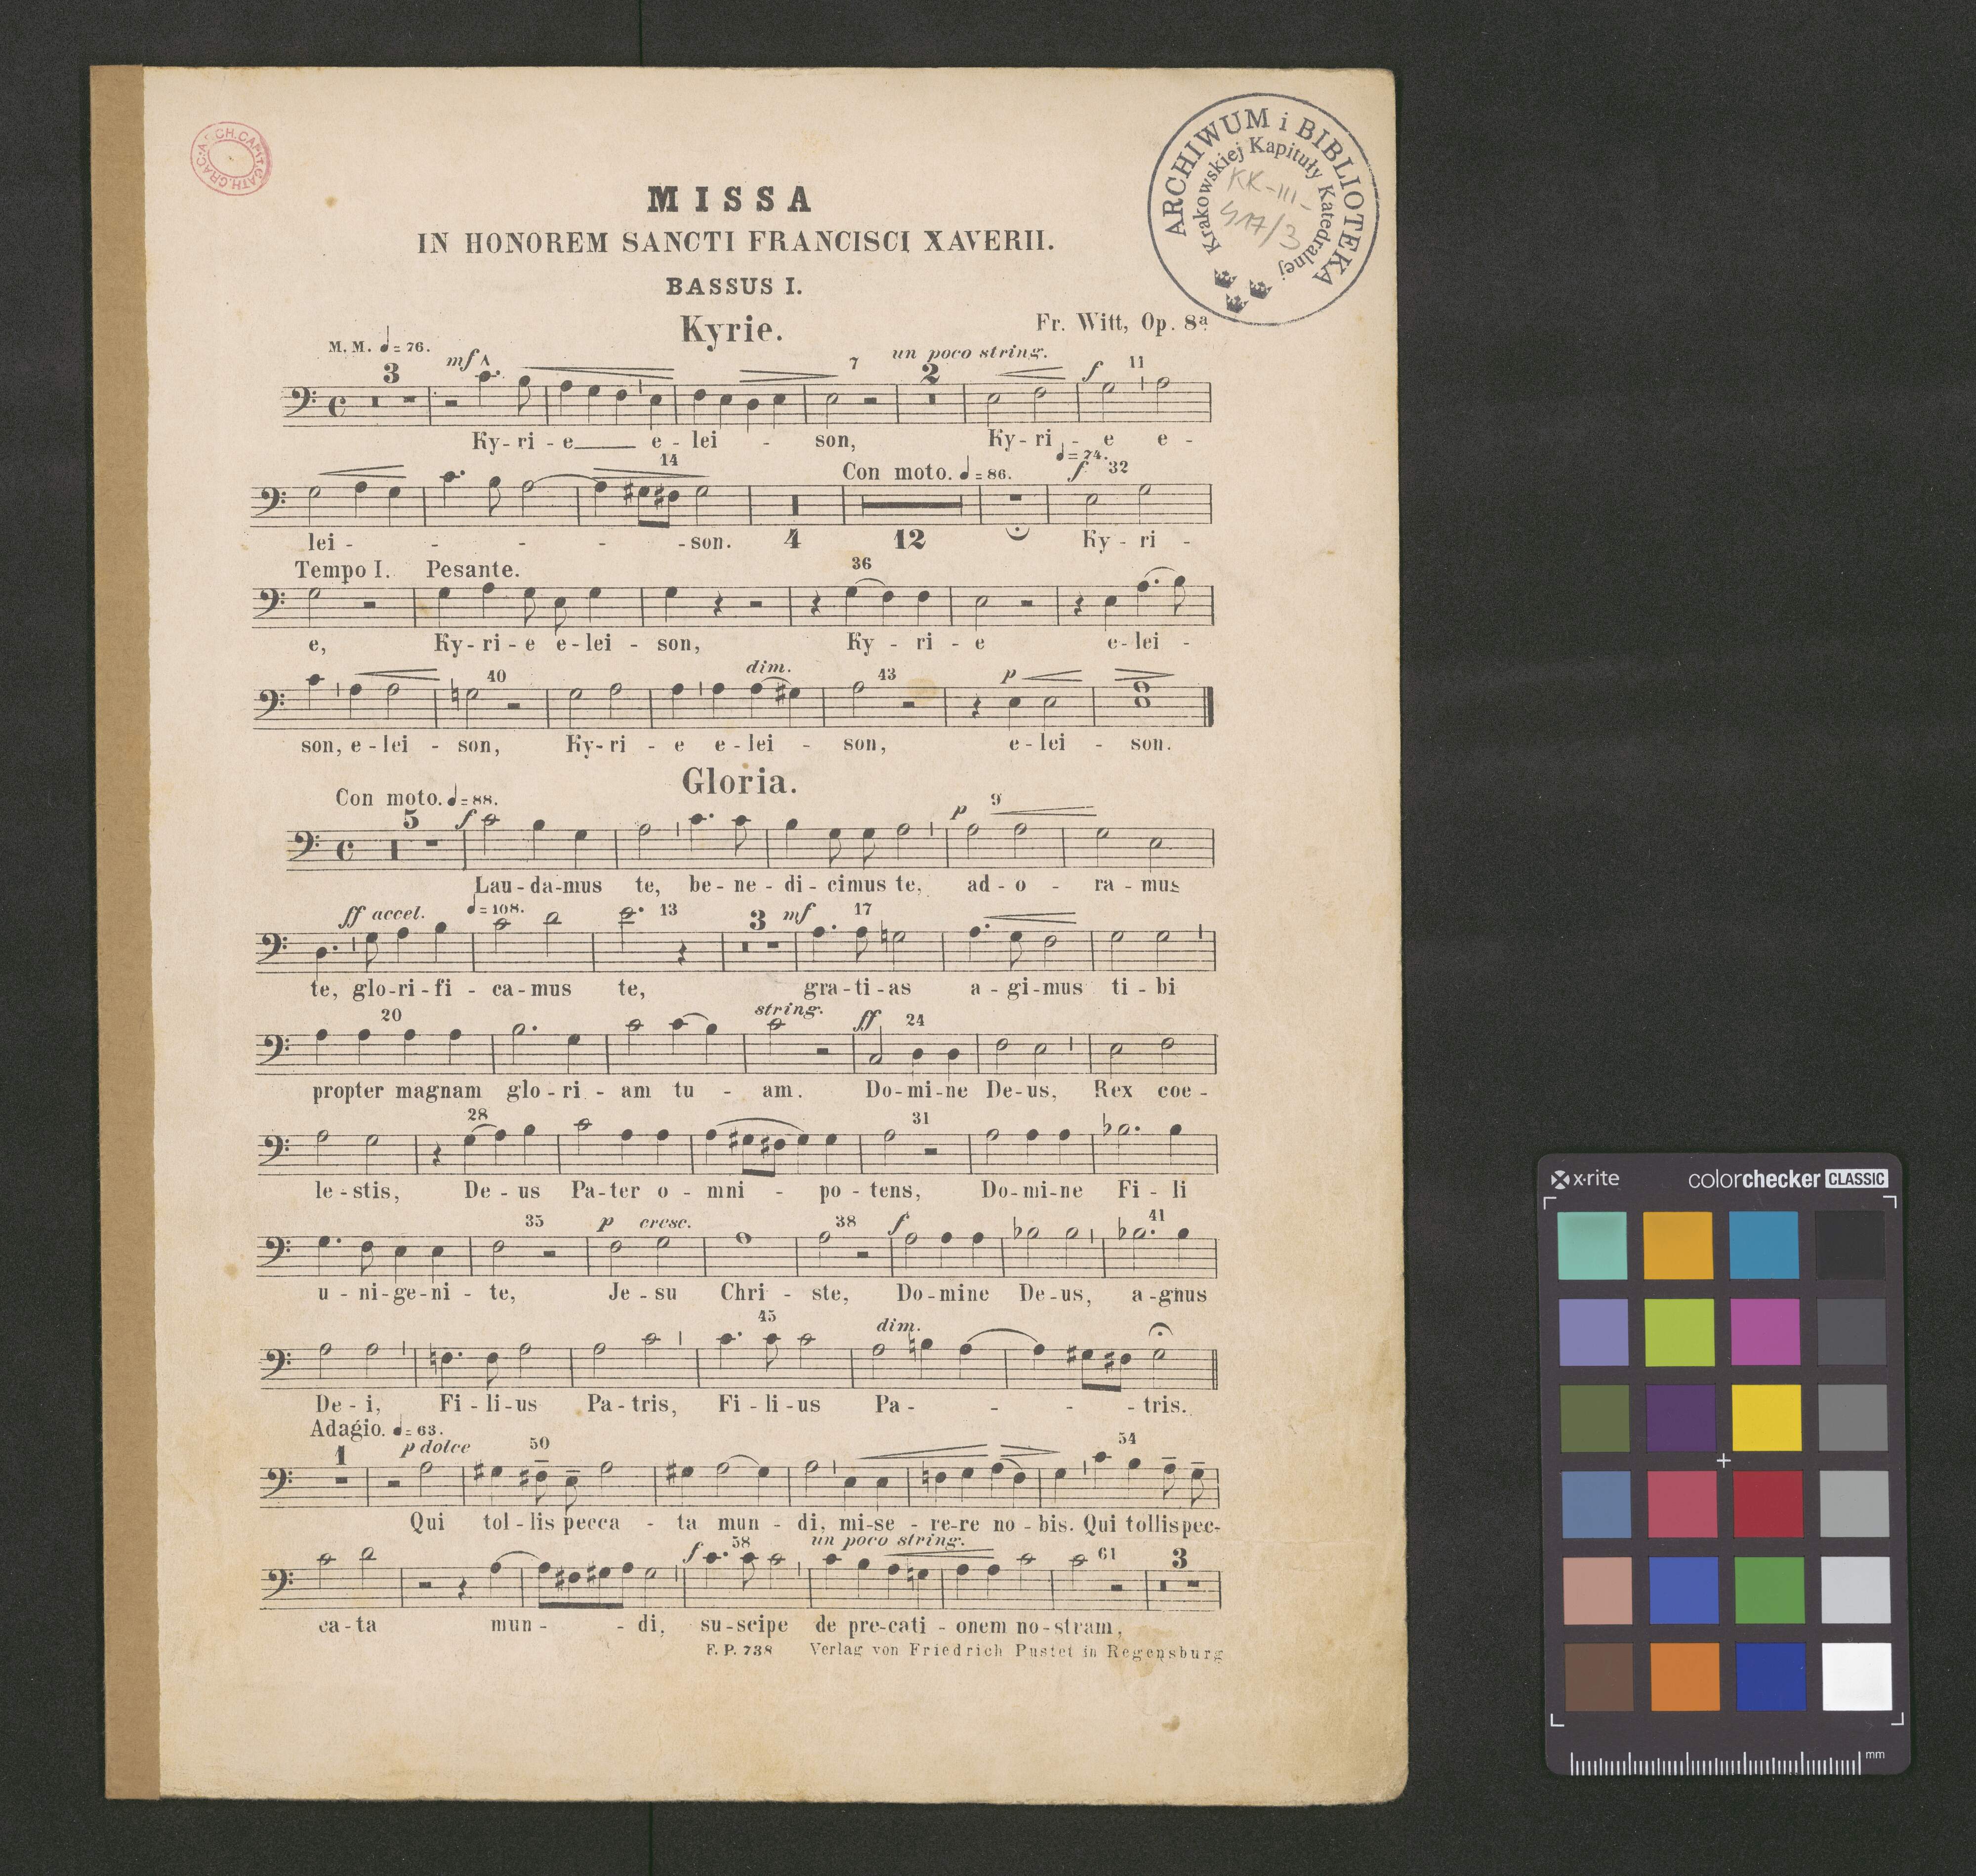 SCH.CAPIT.CATH.CRAC.A
ARCHIWUM i BIBLIOTEKA
Krakowskiej Kapituły Katedralnej
KK-III-
417/3
MISSA
IN HONOREM SANCTI FRANCISCI XAVERII.
BASSUS I.
Kyrie.
Fr. Witt, Op. 8a
M. M. ♩= 76.
mf un poco string. f
3 7 2 11
Ky-ri-e e-lei - son, Ky-ri - e e-
14 Con moto. ♩=86. ♩=74. f 32
lei - - - - - -son. 4 12 Ky-ri -
Tempo I. Pesante. 36
e, Ky-ri-e e-lei - son, Ky - ri - e e-lei -
40 dim. 43 p
son, e-lei - son, Ky-ri - e e-lei - son, e-lei - son.
Gloria.
Con moto. ♩=88.
5 f p 9
Lau-da-mus te, be-ne-di-cimus te, ad-o - ra-mus
ff accel. ♩=108. 13 3 mf 17
te, glo-ri-fi - ca-mus te, gra-ti-as a-gi-mus ti-bi
20 string. ff 24
propter magnam glo-ri - am tu - am. Do-mi-ne De-us, Rex coe-
28 31
le-stis, De-us Pa-ter o-mni - po-tens, Do-mi-ne Fi-li
35 p cresc. 38 f 41
u-ni-ge-ni-te, Je-su Chri - ste, Do-mine De-us, a-gnus
45 dim.
De-i, Fi-li-us Pa-tris, Fi-li-us Pa- - - -tris.
Adagio. ♩=63.
1 p dolce 50 54
Qui tol-lis pecca - ta mun - di, mi-se - re-re no-bis. Qui tollispec-
f 58 un poco string. 61 3
ca-ta mun- -di, su-scipe de pre-cati - onem no-stram,
F. P. 738 Verlag von Friedrich Pustet in Regensburg
x-rite colorchecker CLASSIC
mm